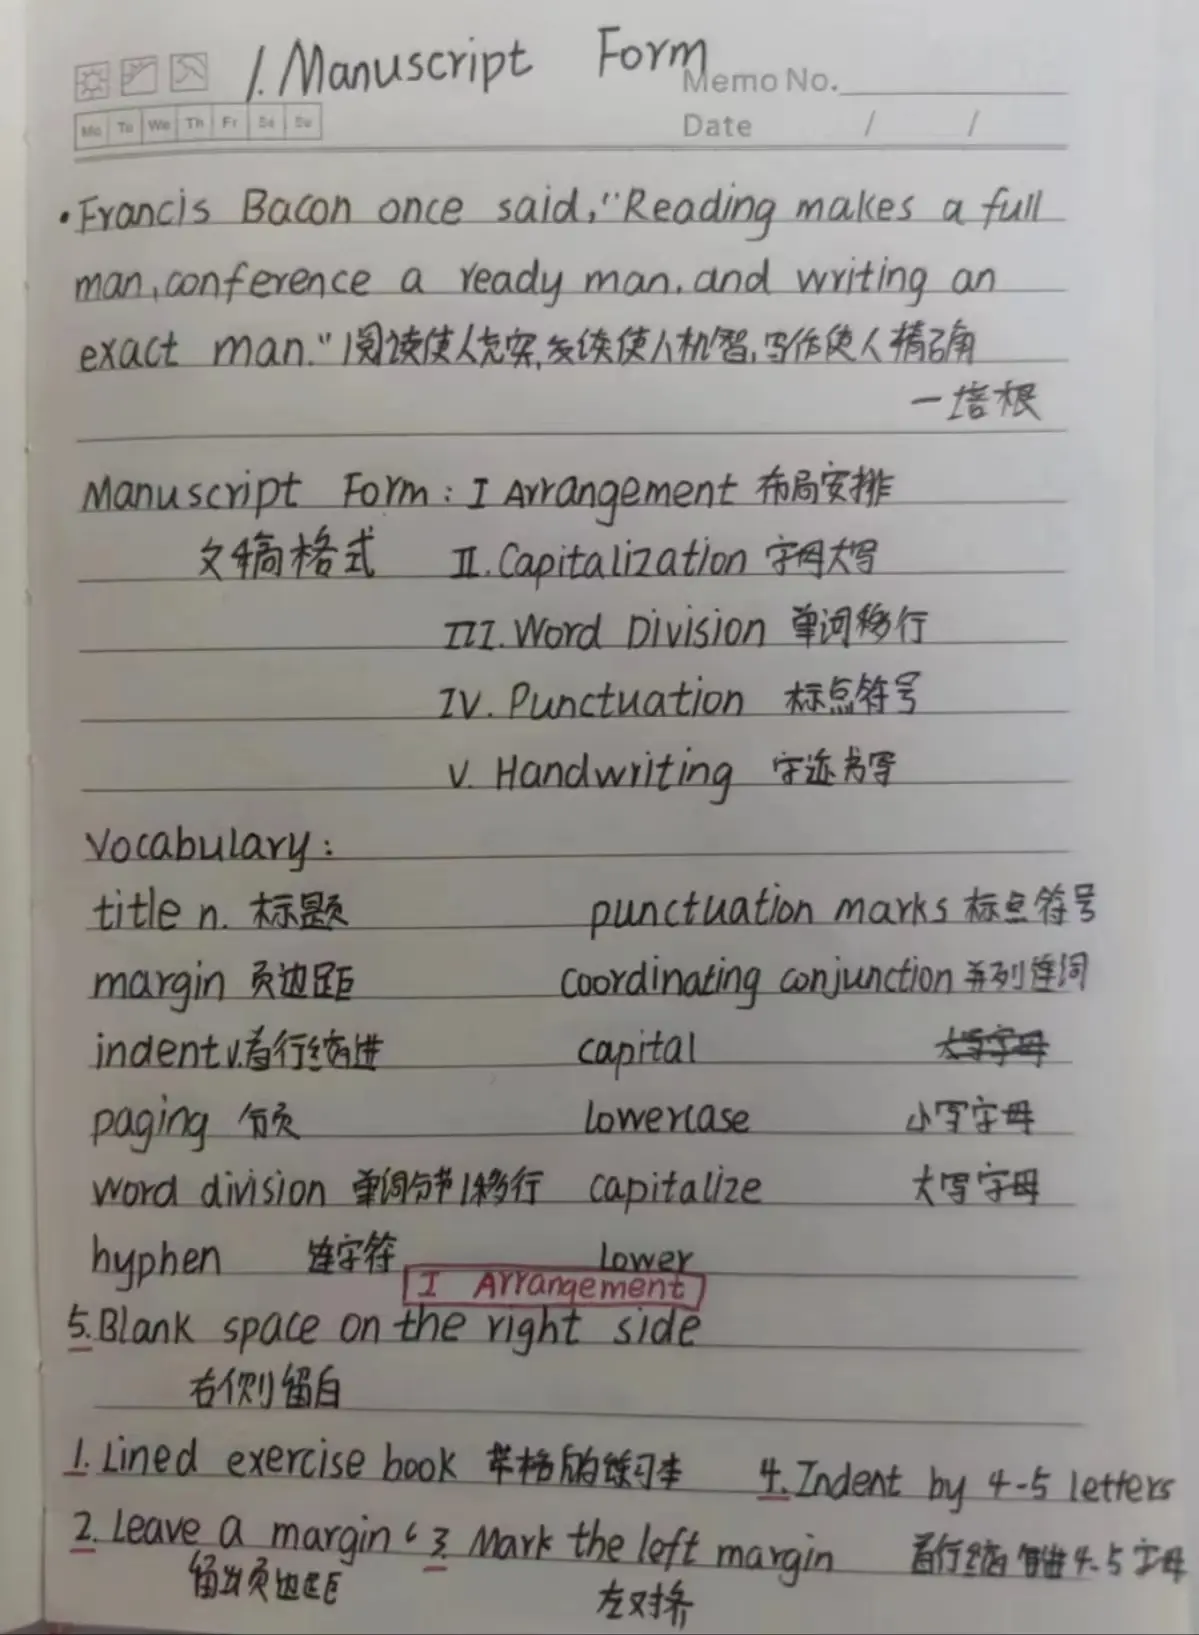 1. Manuscript Form
Memo No.
Mo Tu We Th Fr Sa Su
Date / /
·Francis Bacon once said, "Reading makes a full
man, conference a ready man. and writing an
exact man." 阅读使人充实,交谈使人机智,写作使人精确
—培根
Manuscript Form: I Arrangement 布局安排
文稿格式 II. Capitalization 字母大写
III. Word Division 单词移行
IV. Punctuation 标点符号
V. Handwriting 字迹书写
Vocabulary:
title n. 标题 punctuation marks 标点符号
margin 页边距 coordinating conjunction 并列连词
indent v. 首行缩进 capital 大写字母
paging 分页 lowercase 小写字母
word division 单词分节/移行 capitalize 大写字母
hyphen 连字符 lower
I Arrangement
5. Blank space on the right side
右侧留白
1. Lined exercise book 带格的练习本 4. Indent by 4-5 letters
2. Leave a margin 3. Mark the left margin 首行缩进4-5字母
留出页边距 左对齐